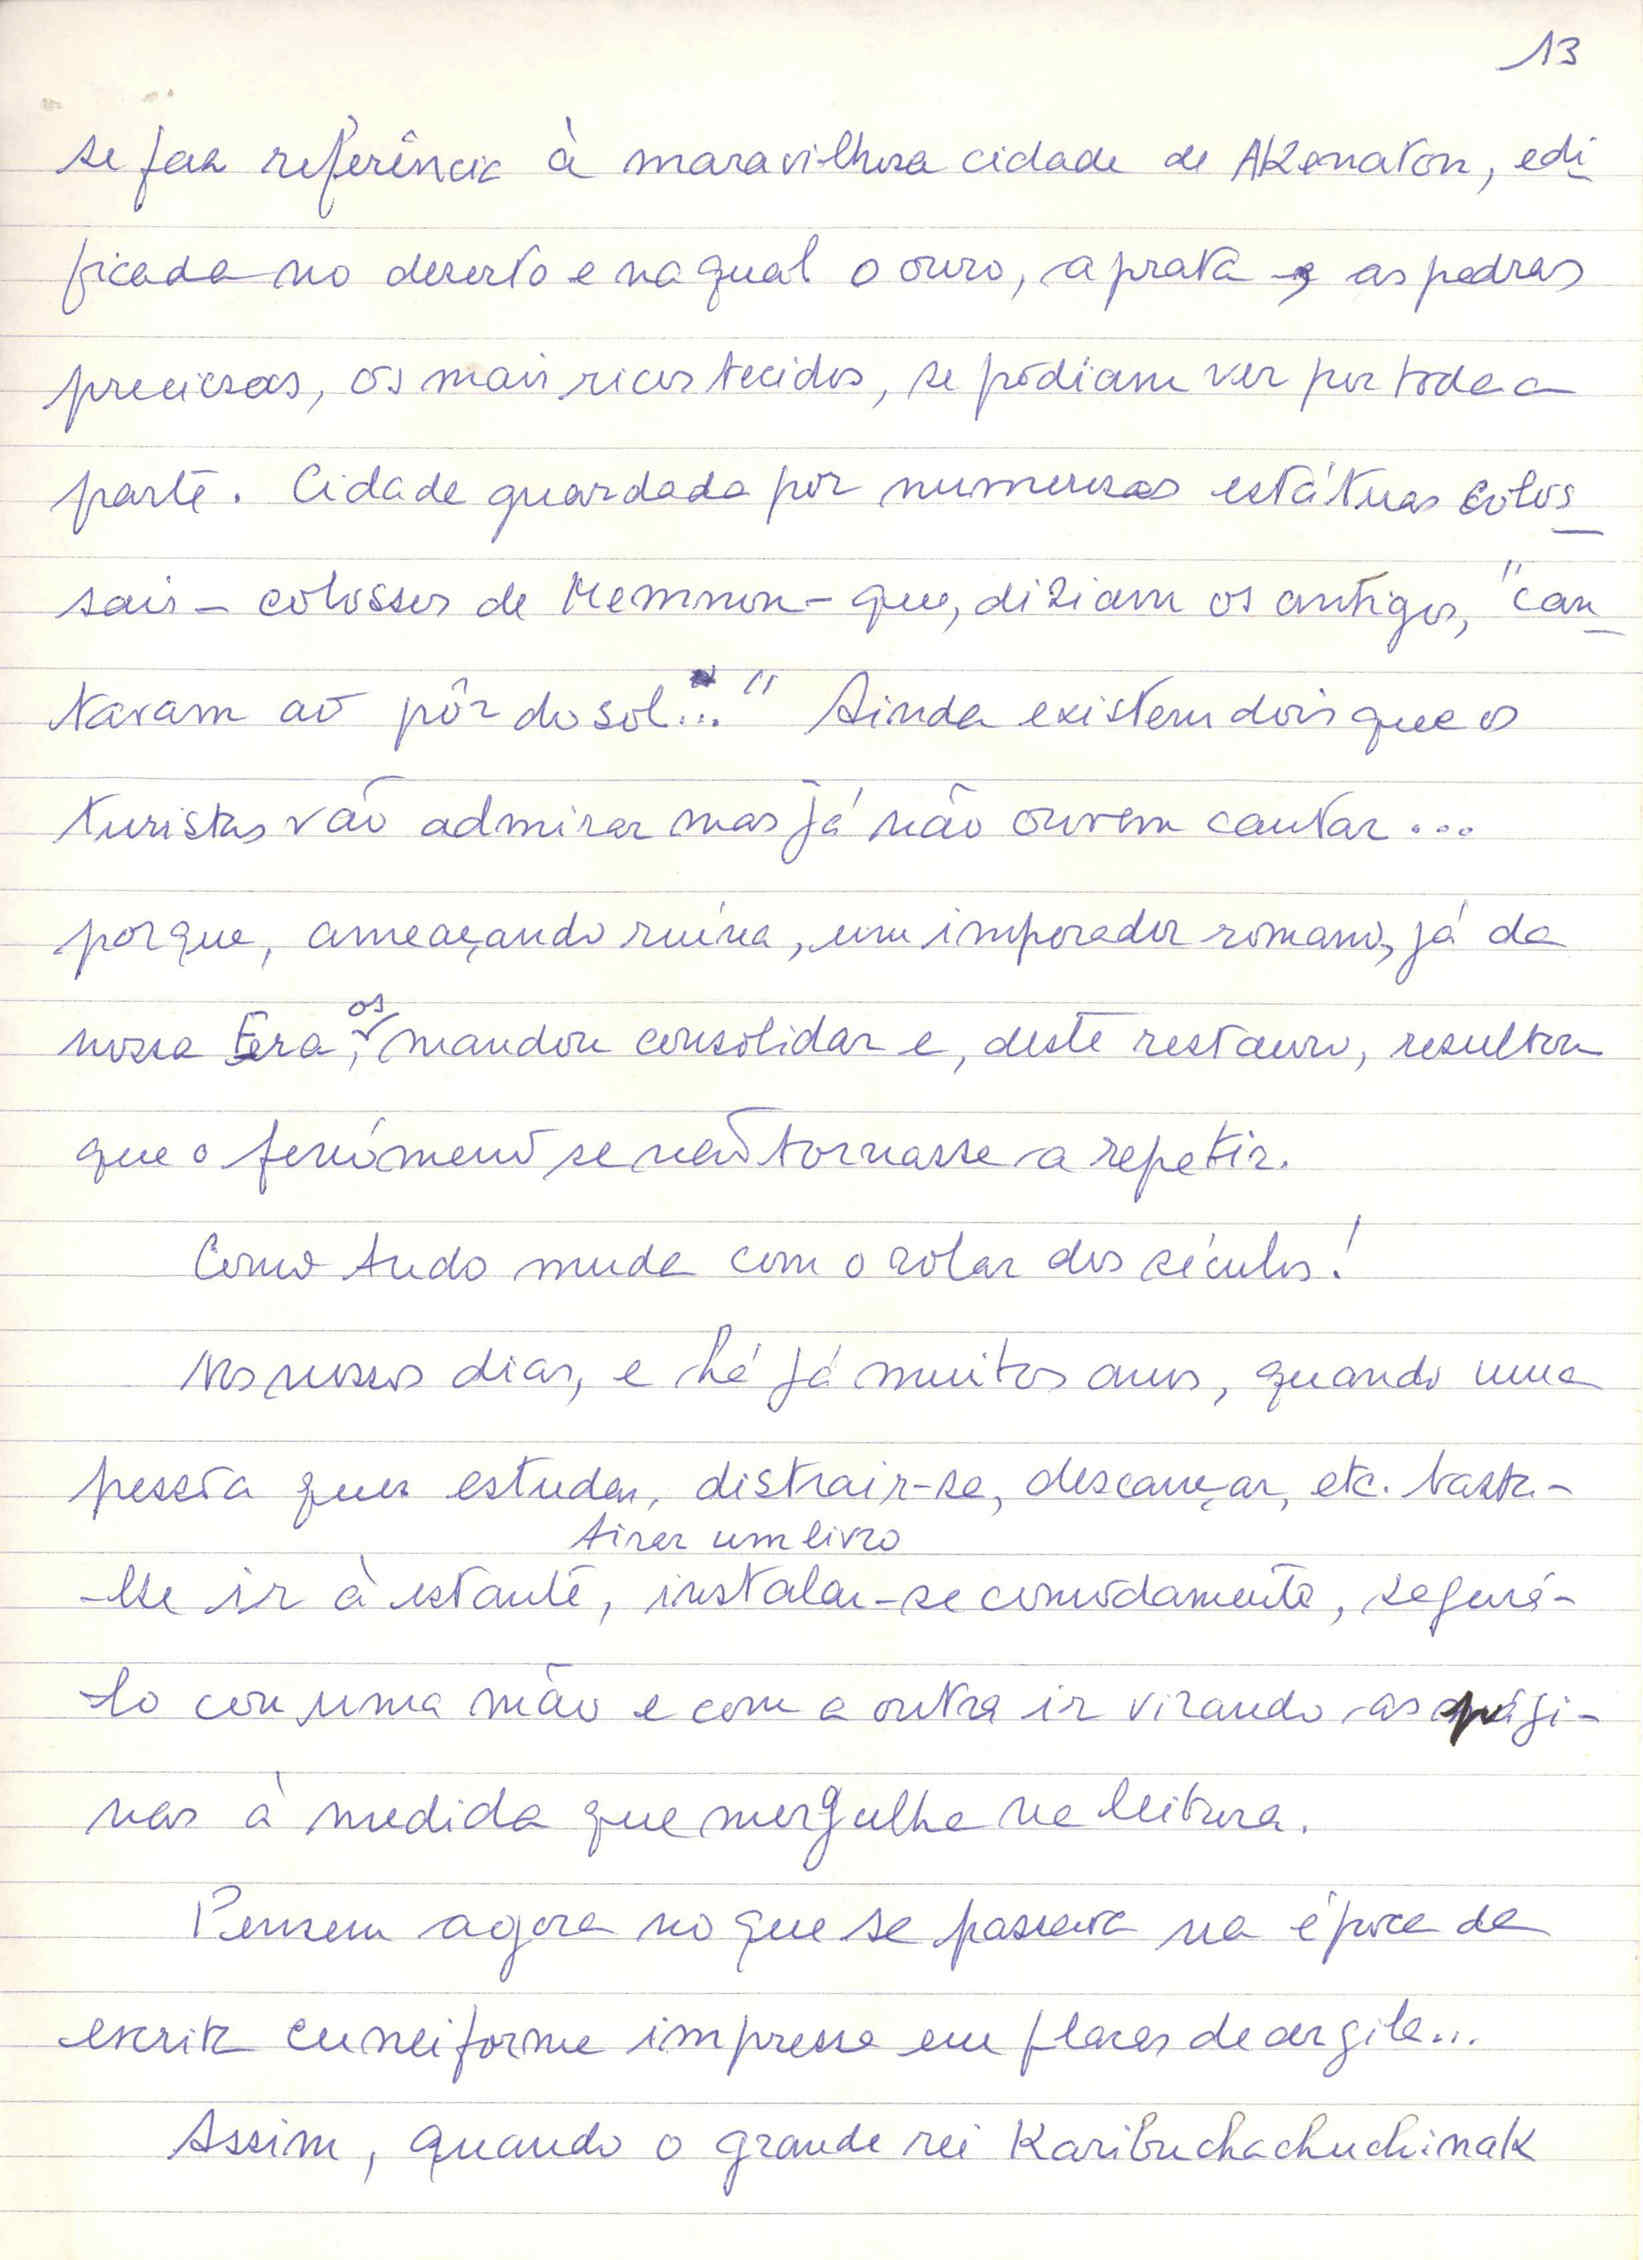 13
se faz referência à maravilhosa cidade de Akenaton, edi
ficada no deserto e na qual o ouro, a prata, as pedras
preciosas, os mais ricos tecidos, se podiam ver por toda a
parte. Cidade guardada por numerosas estátuas colos
sais - colossos de Memnon - que, diziam os antigos, "can
tavam ao pôr do sol..." Ainda existem dois que os
turistas vão admirar mas já não ouvem cantar...
porque, ameaçando ruína, um imperador romano, já da
os
nossa Era, mandou consolidar e, deste restauro, resultou
que o fenómeno se não tornasse a repetir.
Como tudo muda com o rolar dos séculos!
Nos nossos dias, e há já muitos anos, quando uma
pessoa quer estudar, distrair-se, descançar, etc. basta-
tirar um livro
-lhe ir à estante, instalar-se comodamente, segurá-
lo com uma mão e com a outra ir virando as pági-
nas à medida que mergulha na leitura.
Pensem agora no que se passava na época da
escrita cuneiforme impressa em placas de argila...
Assim, quando o grande rei Karibuchachuchinak